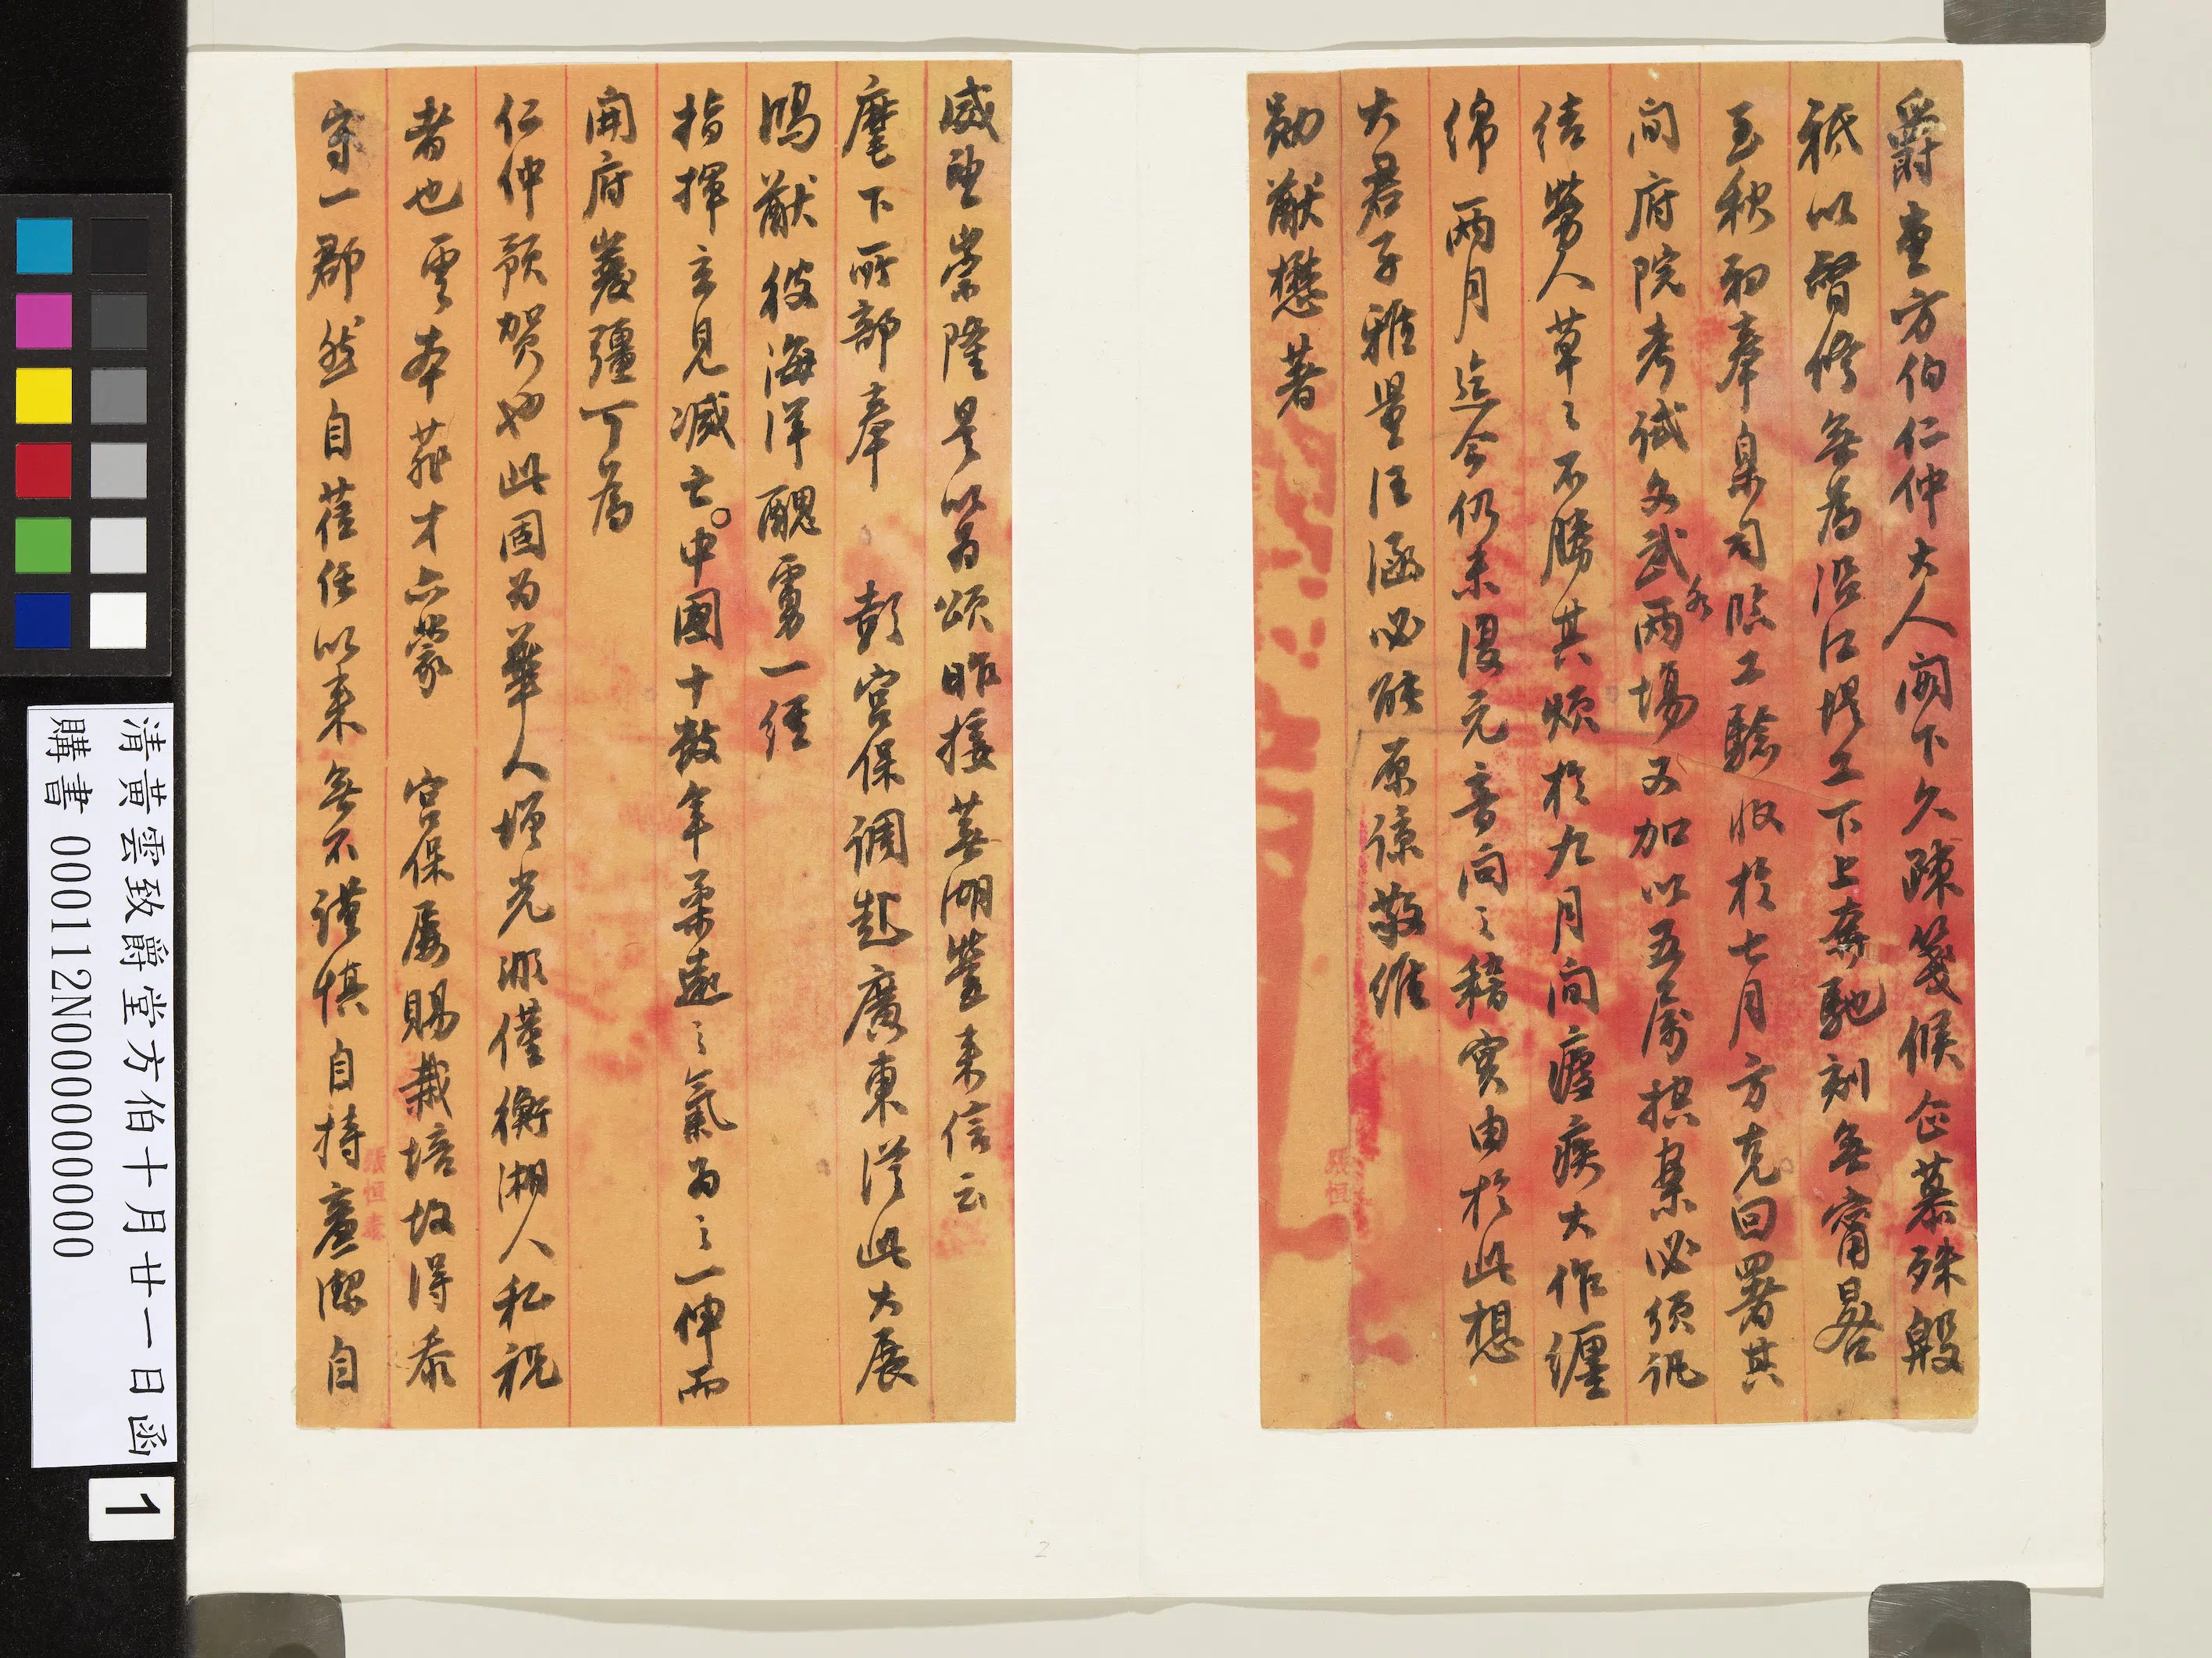 爵堂方伯仁仲大人閣下久疎箋候企慕殊殷
祇以督修無為沿江堤工下上奔馳刻無甯晷
至秋初奉臬司臨工驗收於七月方克回署其
間府院考試文武兩場又加以五屬控案必須訊
結勞人草々不勝其煩於九月間瘧疾大作纏
綿兩月迄今仍未復元音問之稽實由於此想
大君子雅量汪涵必能原諒敬維
勛猷懋著
威望崇隆是以為頌昨接蕪湖營來信云
麾下所部奉 彭宮保調赴廣東從此大展
鴻猷彼海洋醜虜一經
指揮立見滅亡。中國十數年柔遠之氣為之一伸而
開府巖疆可為
仁仲預賀也此固為華人增光不僅衡湘人私祝
者也雲本菲才亦蒙 宮保屢賜栽培故得忝
守一郡然自蒞任以來無不謹慎自持廉潔自
張恒
張恒泰
清黃雲致爵堂方伯十月廿一日函
購書 000112N000000000
1
2
1